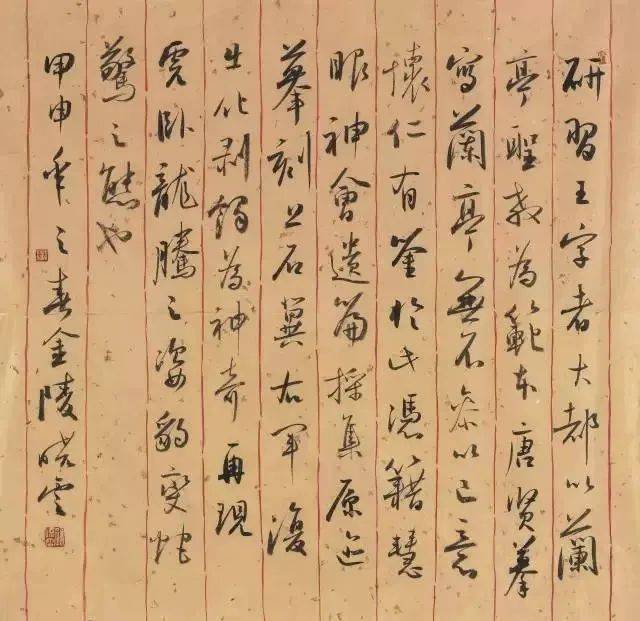 研習王字者大都以蘭
亭聖教為範本唐賢摹
寫蘭亭無不參以己意
懷仁有鉴於此憑籍慧
眼神會遺篇採集原迹
摹刻上石冀右軍復
生化剥蝕為神奇再現
虎卧龍騰之姿豹变蛇
驚之態也
甲申年之春金陵晓雲